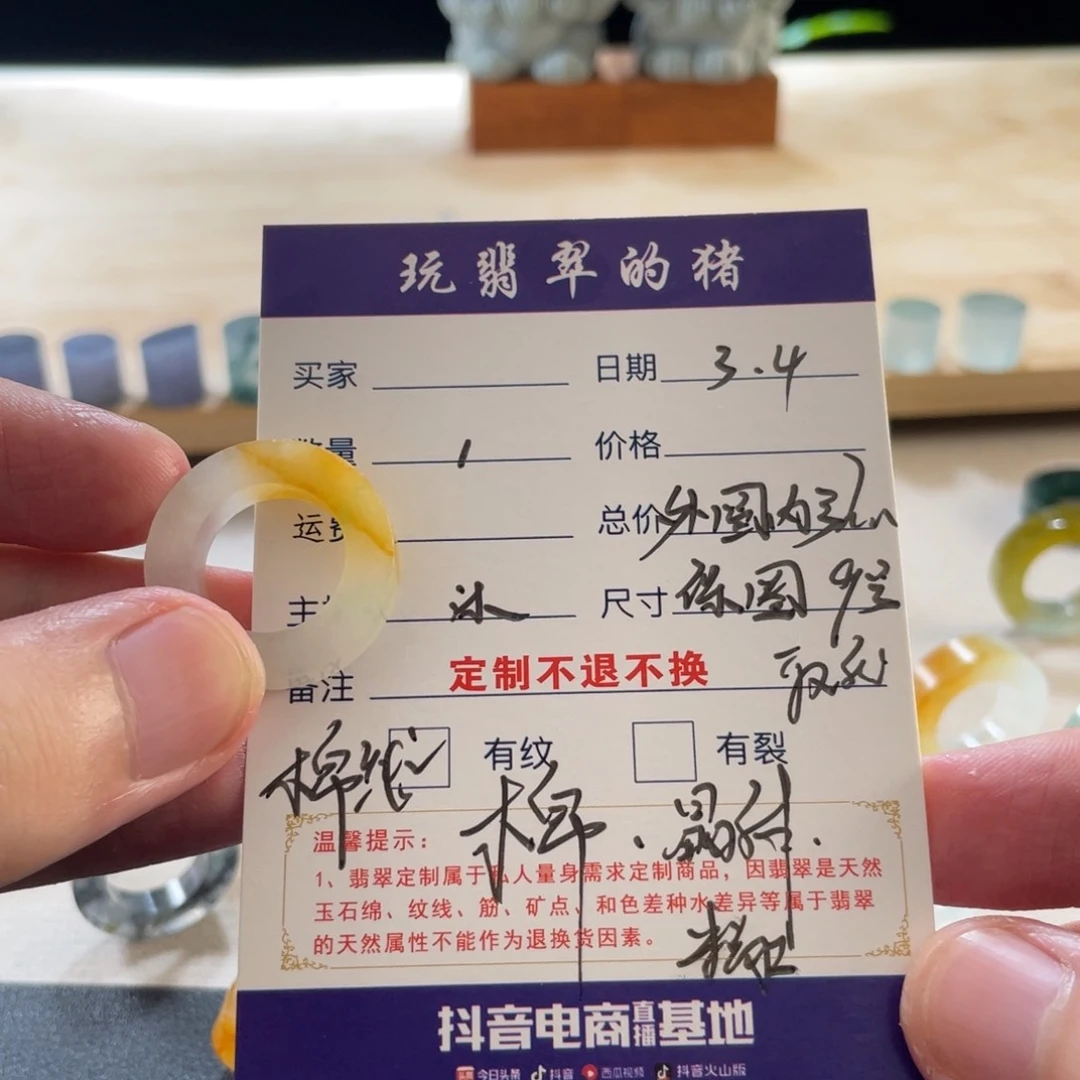 玩翡翠的猪
买家 日期 3.4
数量 1 价格
运 总价 外圆内
主 冰 尺寸 圆
备注 定制不退不换
棉纹 有纹 有裂
棉.晶
温馨提示：
1、翡翠定制属于私人量身需求定制商品，因翡翠是天然
玉石绵、纹线、筋、矿点、和色差种水差异等属于翡翠
的天然属性不能作为退换货因素。
抖音电商直播基地
今日头条 抖音 西瓜视频 抖音火山版